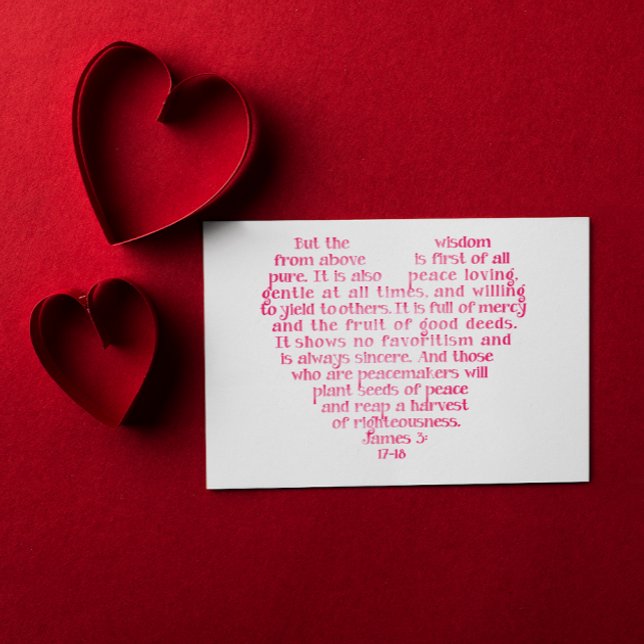 But the wisdom
from above is first of all
pure. It is also peace loving,
gentle at all times, and willing
to yield to others. It is full of mercy
and the fruit of good deeds.
It shows no favoritism and
is always sincere. And those
who are peacemakers will
plant seeds of peace
and reap a harvest
of righteousness.
James 3:
17-18